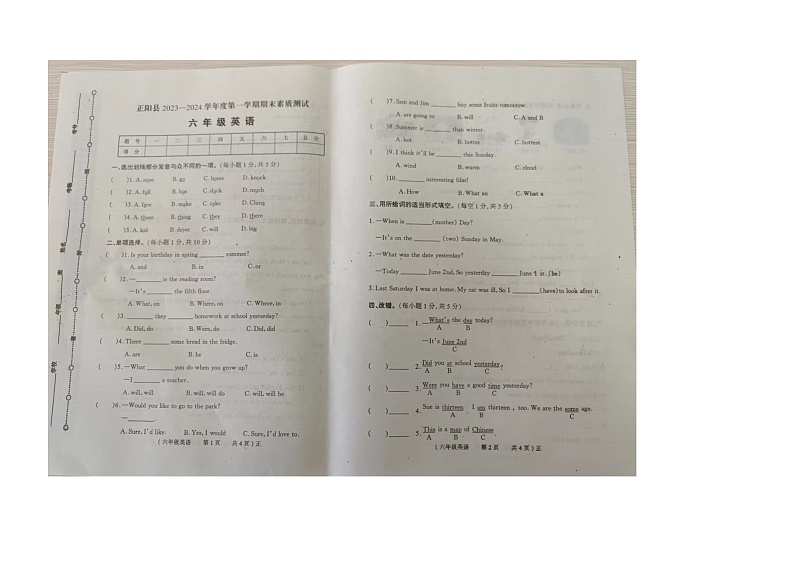 正阳县 2023—2024 学年度第一学期期末素质测试
六年级英语
题 号 一 二 三 四 五 六 七 总 分
得 分
一、选出划线部分发音与众不同的一项。(每小题 1 分,共 5 分)
( )1. A. nose B. go C. home D. knock
( )2. A. full B. bus C. duck D. much
( )3. A. face B. make C. cake D. China
( )4. A. these B. thing C. they D. there
( )5. A. kid B. dove C. will D. big
二、单项选择。(每小题 1 分,共 10 分)
( )1. Is your birthday in spring ______ summer?
A. and B. in C. or
( )2. —______ is the reading room?
—It's ______ the fifth floor.
A. What, on B. Where, on C. Where, in
( )3. ______ they ______ homework at school yesterday?
A. Did, do B. Were, do C. Did, did
( )4. There ______ some bread in the fridge.
A. are B. be C. is
( )5. —What ______ you do when you grow up?
—I ______ a teacher.
A. will, will B. will, will do C. will, will be
( )6. —Would you like to go to the park?
—______.
A. Sure, I'd like. B. Yes, I would C. Sure, I'd love to.
(六年级英语 第 1 页 共 4 页)正
( )7. Sam and Jim ______ buy some fruits tomorrow.
A. are going to B. will C. A and B
( )8. Summer is ______ than winter.
A. hot B. hotter C. hottest
( )9. I think it'll be ______ this Sunday.
A. wind B. warm C. cloud
( )10. ______ interesting film!
A. How B. What an C. What a
三、用所给词的适当形式填空。(每空 1 分,共 5 分)
1. —When is ______ (mother) Day?
—It's on the ______ (two) Sunday in May.
2. —What was the date yesterday?
—Today ______ June 2nd, So yesterday ______ June 1 st. (be)
3. Last Saturday I was at home. My cat was ill, So I ______ (have) to look after it.
四、改错。(每小题 1 分,共 5 分)
( )____ 1. —What's the day today?
A B
—It's June 2nd
C
( )____ 2. Did you at school yesterday?
A B C
( )____ 3. Were you have a good time yesterday?
A B C
( )____ 4. Sue is thirteen I am thirteen , too. We are the some age.
A B C
( )____ 5. This is a map of Chinese
A B C
(六年级英语 第 2 页 共 4 页)正
学校
年级
班
姓名
考场
考号